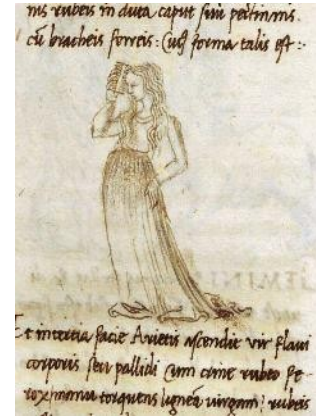 nis rubeis in caput
cũ bracheis ferreis: Cuiꝰ forma talis est :~
Et in tertia facie Arietis ascendit vir flaui
corporis seu pallidi Cum crine rubeo fe
rox manu torquens ligneã virgam: rubeis